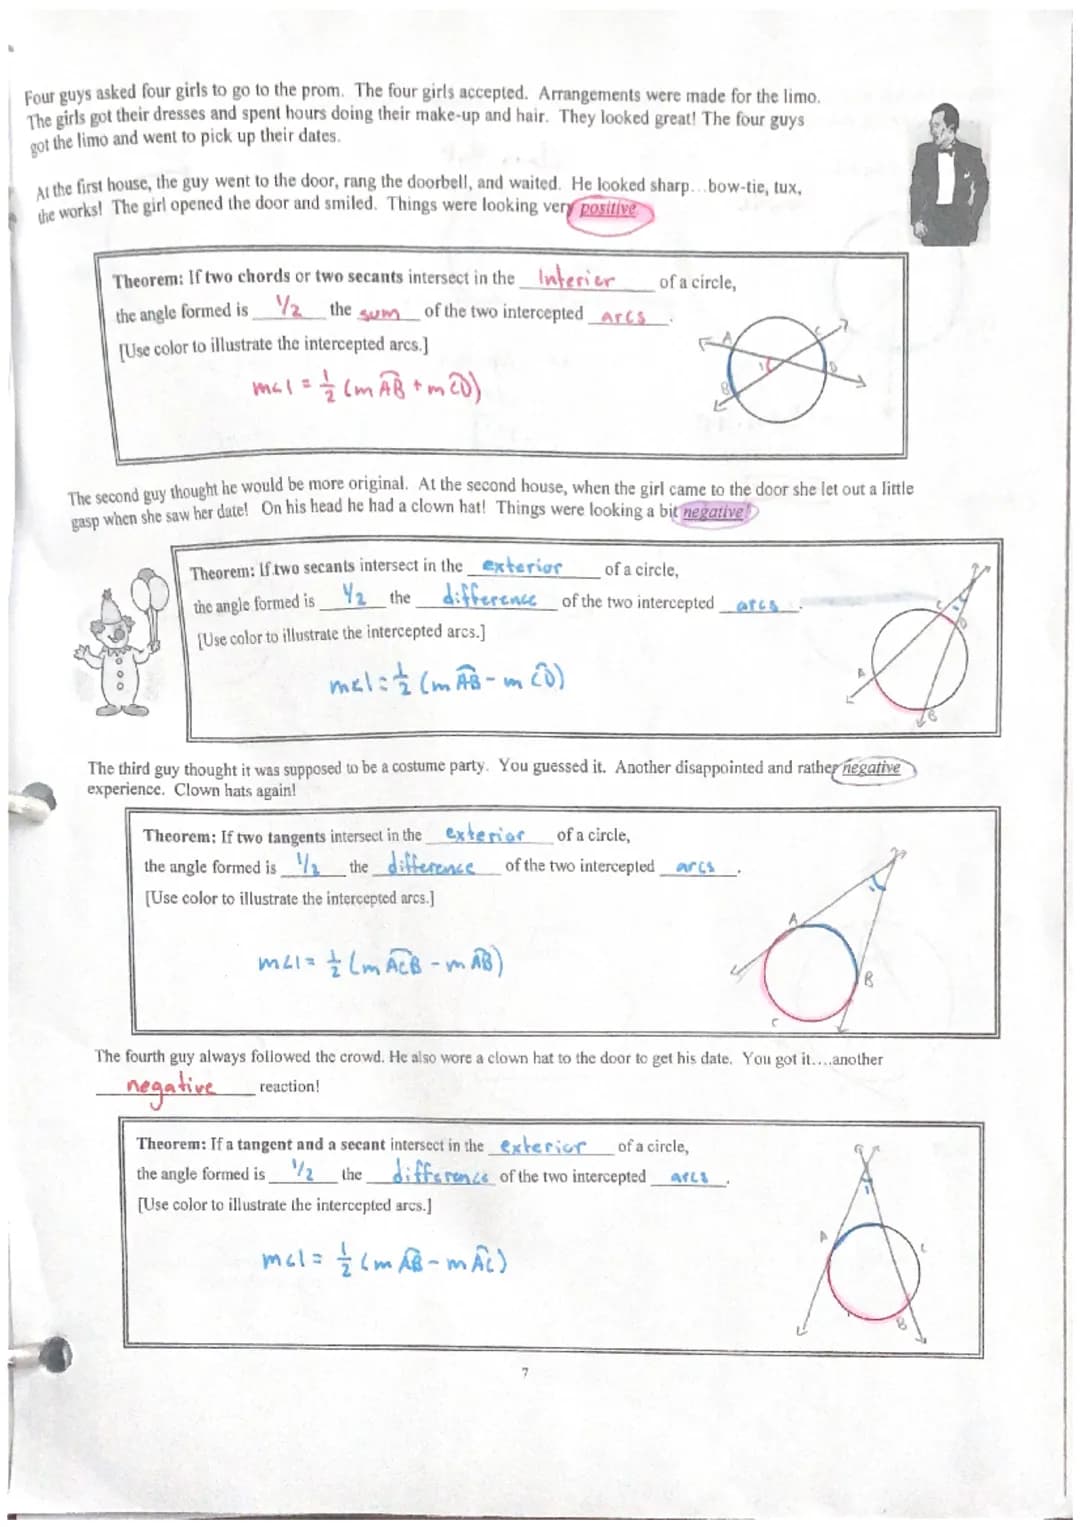 Four guys asked four girls to go to the prom. The four girls accepted. Arrangements were made for the limo.
The girls got their dresses and spent hours doing their make-up and hair. They looked great! The four guys
got the limo and went to pick up their dates.
At the first house, the guy went to the door, rang the doorbell, and waited. He looked sharp…bow-tie, tux,
the works! The girl opened the door and smiled. Things were looking very positive
Theorem: If two chords or two secants intersect in the Interior of a circle,
the angle formed is 1/2 the sum of the two intercepted arcs.
[Use color to illustrate the intercepted arcs.]
m∠1 = 1/2 (m AB + m CD)
A
C
1
B
D
The second guy thought he would be more original. At the second house, when the girl came to the door she let out a little
gasp when she saw her date! On his head he had a clown hat! Things were looking a bit negative!
Theorem: If two secants intersect in the exterior of a circle,
the angle formed is 1/2 the difference of the two intercepted arcs.
[Use color to illustrate the intercepted arcs.]
m∠1 = 1/2 (m AB - m CD)
C
D
A
B
The third guy thought it was supposed to be a costume party. You guessed it. Another disappointed and rather negative
experience. Clown hats again!
Theorem: If two tangents intersect in the exterior of a circle,
the angle formed is 1/2 the difference of the two intercepted arcs.
[Use color to illustrate the intercepted arcs.]
m∠1 = 1/2 (m ACB - m AB)
1
A
B
C
The fourth guy always followed the crowd. He also wore a clown hat to the door to get his date. You got it….another
negative reaction!
Theorem: If a tangent and a secant intersect in the exterior of a circle,
the angle formed is 1/2 the difference of the two intercepted arcs.
[Use color to illustrate the intercepted arcs.]
m∠1 = 1/2 (m AB - m AC)
1
A
C
B
7